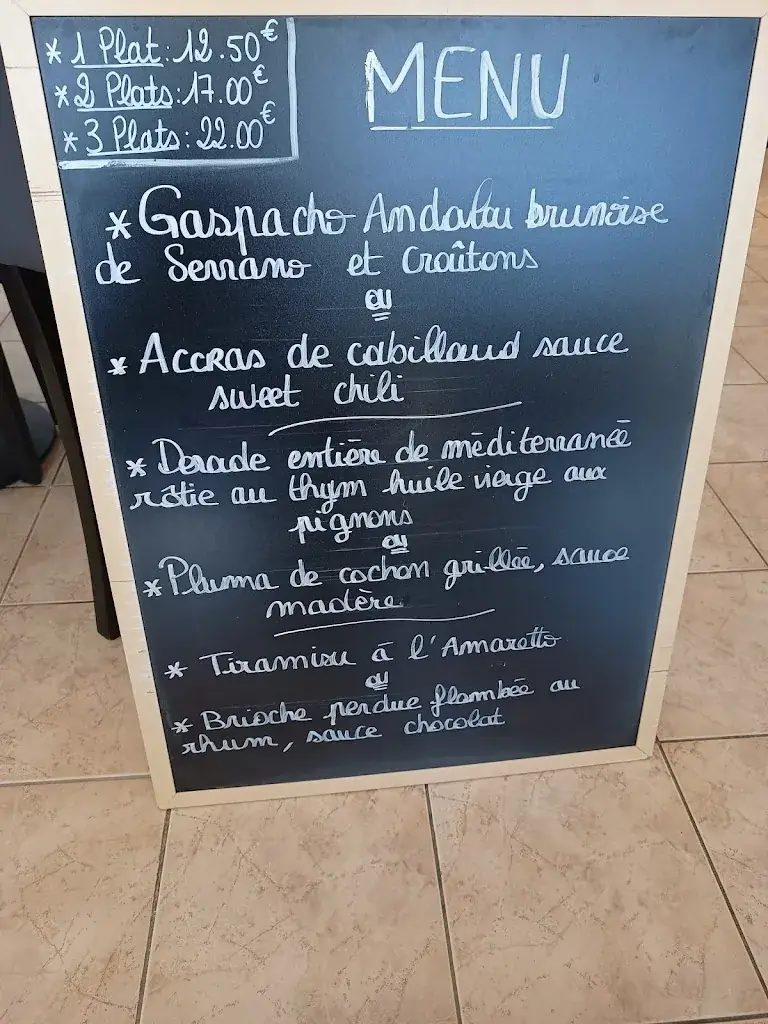 * 1 Plat: 12.50€
* 2 Plats: 17.00€
* 3 Plats: 22.00€
MENU
* Gaspacho Andalou brunoise
de Serrano et Croûtons
ou
* Accras de cabillaud sauce
sweet chili
* Dorade entière de méditerranée
rôtie au thym huile vierge aux
pignons
ou
* Pluma de cochon grillée, sauce
madère
* Tiramisu à l'Amaretto
ou
* Brioche perdue flambée au
rhum, sauce chocolat